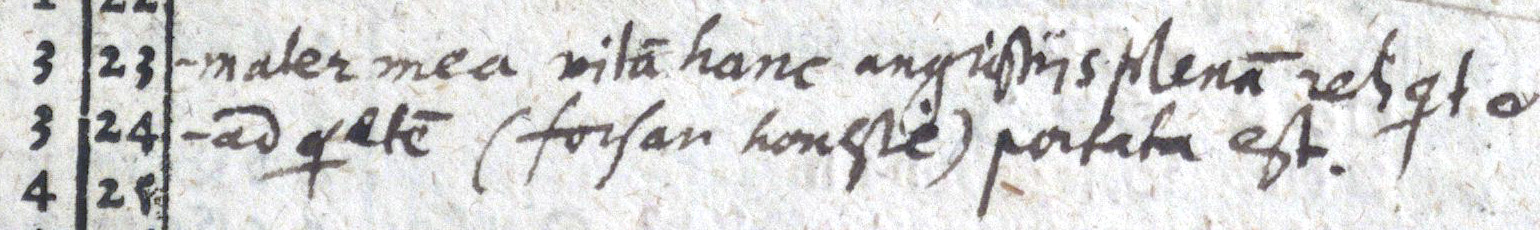 22
3 23 -mater mea vitā hanc angustijs plenā relīqt
3 24 -ad qetē (forsan honeste) portata est.
4 25